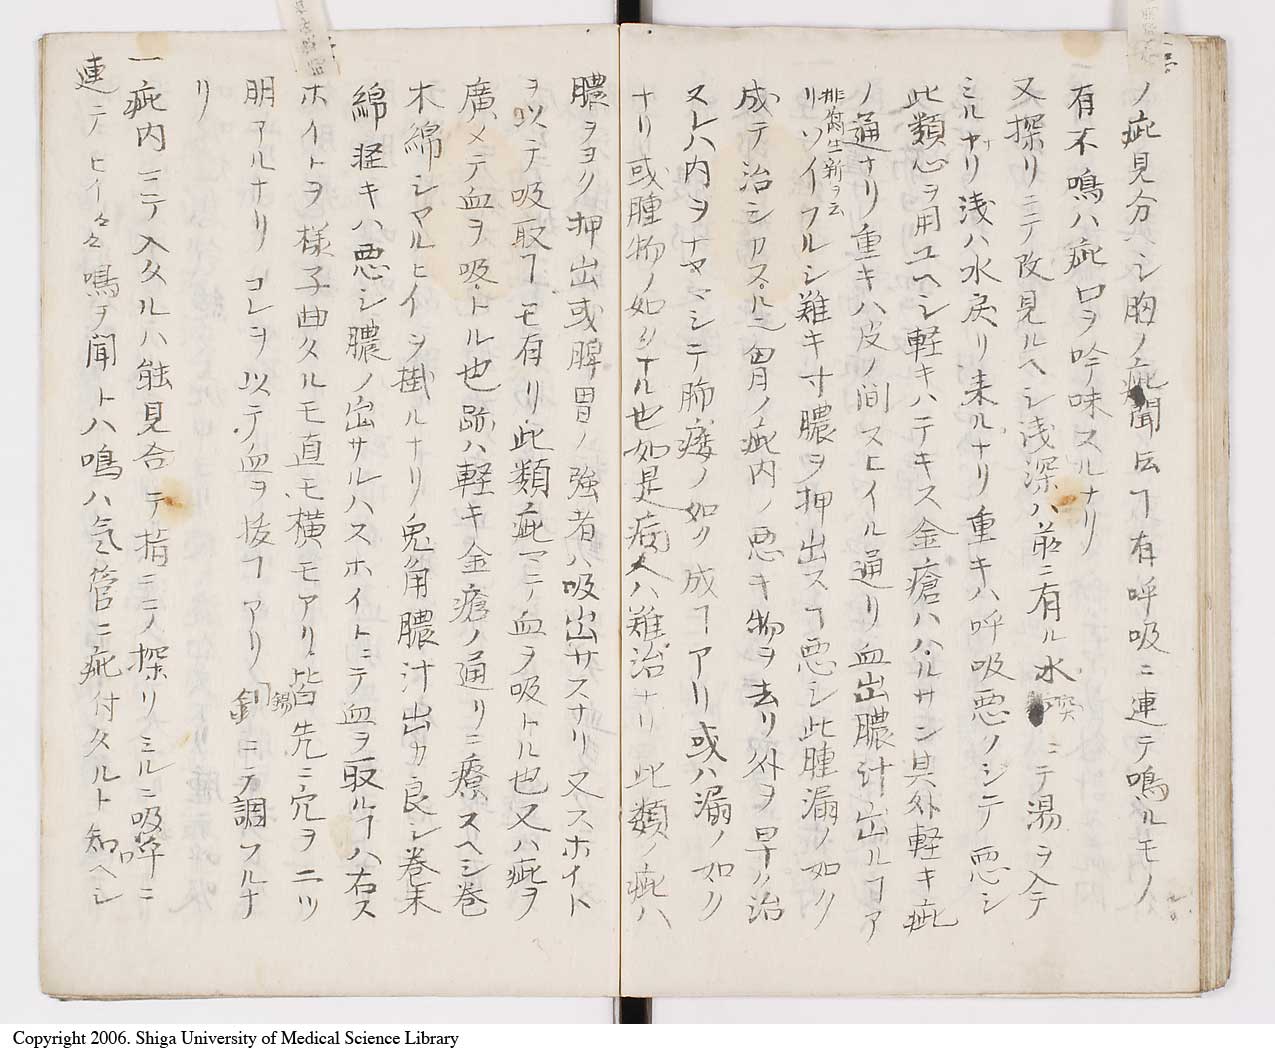 ノ疵見分シ胸ノ疵聞伝フ有呼吸ニ連テ鳴ルモノ
有不鳴ハ疵口ヲ吟味スルナリ
又探リニテ改見ルヘシ浅深ハ前ニ有ル水突ニテ湯ヲ入テ
ミルナリ浅ハ水戻リ来ルナリ重キハ呼吸悪ノシテ悪シ
此類心ヲ用ユヘシ軽キハテキス金瘡ハハルサモシ其外軽キ疵
ノ通ナリ重キハ皮ノ間スヒイル通リ血出膿汁出ルヿア
リソイフルシ難キ寸膿ヲ押出スヿ悪シ此腫漏ノ如ク
排腐生新ヲ云
成テ治シカヌルニ胃ノ疵内ノ悪キ物ヲ去リ外ヲ早ク治
スレハ内ヲナヤマシテ肺痿ノ如ク成ヿアリ或ハ漏ノ如ク
ナリ或腫物ノ如クナル也如是病人ハ難治ナリ此類ノ疵ハ
膿ヲヨク押出或脾胃ノ強者ハ吸出サスナリ又スホイト
ヲ以テ吸取ヿモ有リ此類疵マニテ血ヲ吸トル也又ハ疵ヲ
廣メテ血ヲ吸トル也跡ハ軽キ金瘡ノ通リニ療スヘシ巻
木綿シマルヒイヲ掛ルナリ兎角膿汁出カ良シ巻木
綿経キハ悪シ膿ノ出サルハスホイトニテ血ヲ取ルヿハ右ス
ホイトヲ様子曲タルモ直モ横モアリ皆先ニ穴ヲ二ツ
明アルナリコレヲ以テ血ヲ抜ヿアリ錫ニテ調フルナ
リ
一疵内ニテ入タルハ能見合テ指ニノ探リミルニ吸呼ニ
連テヒイ々々鳴ヲ聞トハ鳴ハ気管ニ疵付タルト知ヘシ
Copyright 2006. Shiga University of Medical Science Library